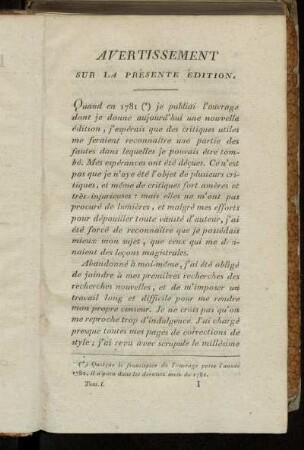 AVERTISSEMENT
SUR LA PRÉSENTE ÉDITION.
Quand en 1781 (*) je publiai l'ouvrage
dont je donne aujourd'hui une nouvelle
édition, j'espérais que des critiques utiles
me feraient reconnaître une partie des
fautes dans lesquelles je pouvais être tom-
bé. Mes espérances ont été déçues. Ce n'est
pas que je n'aye été l'objet de plusieurs cri-
tiques, et même de critiques fort amères et
très-injurieuses : mais elles ne m'ont pas
procuré de lumières, et malgré mes efforts
pour dépouiller toute vanité d'auteur, j'ai
été forcé de reconnaître que je possédais
mieux mon sujet, que ceux qui me don-
naient des leçons magistrales.
Abandonné à moi-même, j'ai été obligé
de joindre à mes premières recherches des
recherches nouvelles, et de m'imposer un
travail long et difficile pour me rendre
mon propre censeur. Je ne crois pas qu'on
me reproche trop d'indulgence. J'ai chargé
presque toutes mes pages de corrections de
style ; j'ai revu avec scrupule le millésime
(*) Quoique le frontispice de l'ouvrage porte l'année
1782, il a paru dans les derniers mois de 1781.
Tome I. I